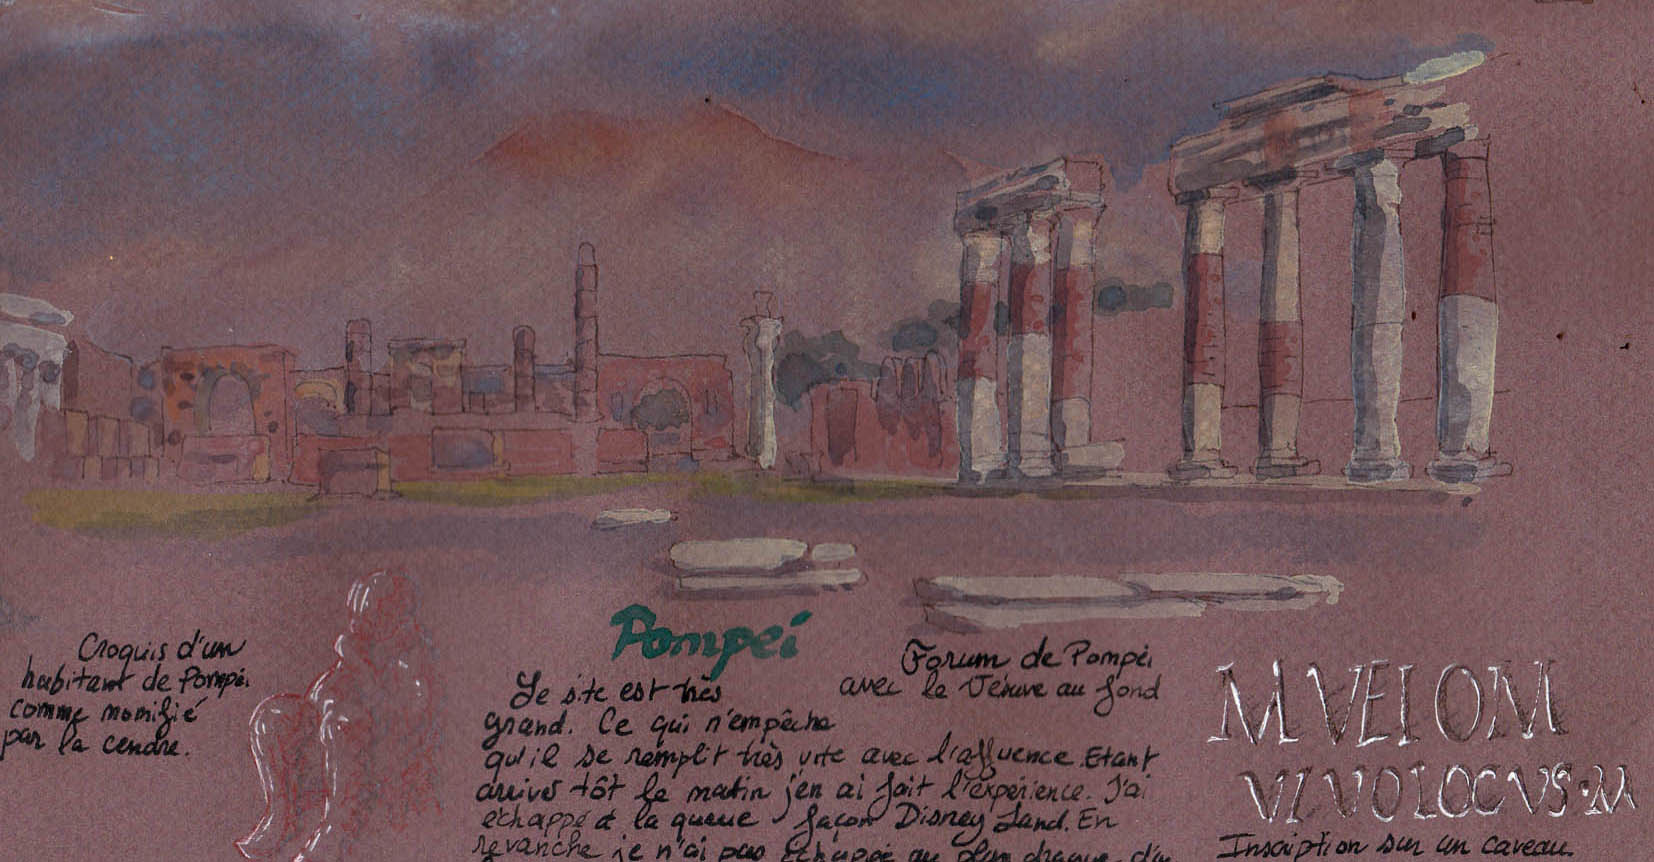 Croquis d'un
habitant de Pompéi
comme momifié
par la cendre.
Pompéi
Le site est très
grand. Ce qui n'empêche
qu'il se remplit très vite avec l'affluence. Etant
arrivé tôt le matin j'en ai fait l'expérience. J'ai
échappé à la queue façon Disney Land. En
revanche je n'ai pas échappé au plan drague d'u
Forum de Pompéi
avec le Vésuve au fond
M VEI OM
VIVO LOCVS · M
Inscription sur un caveau